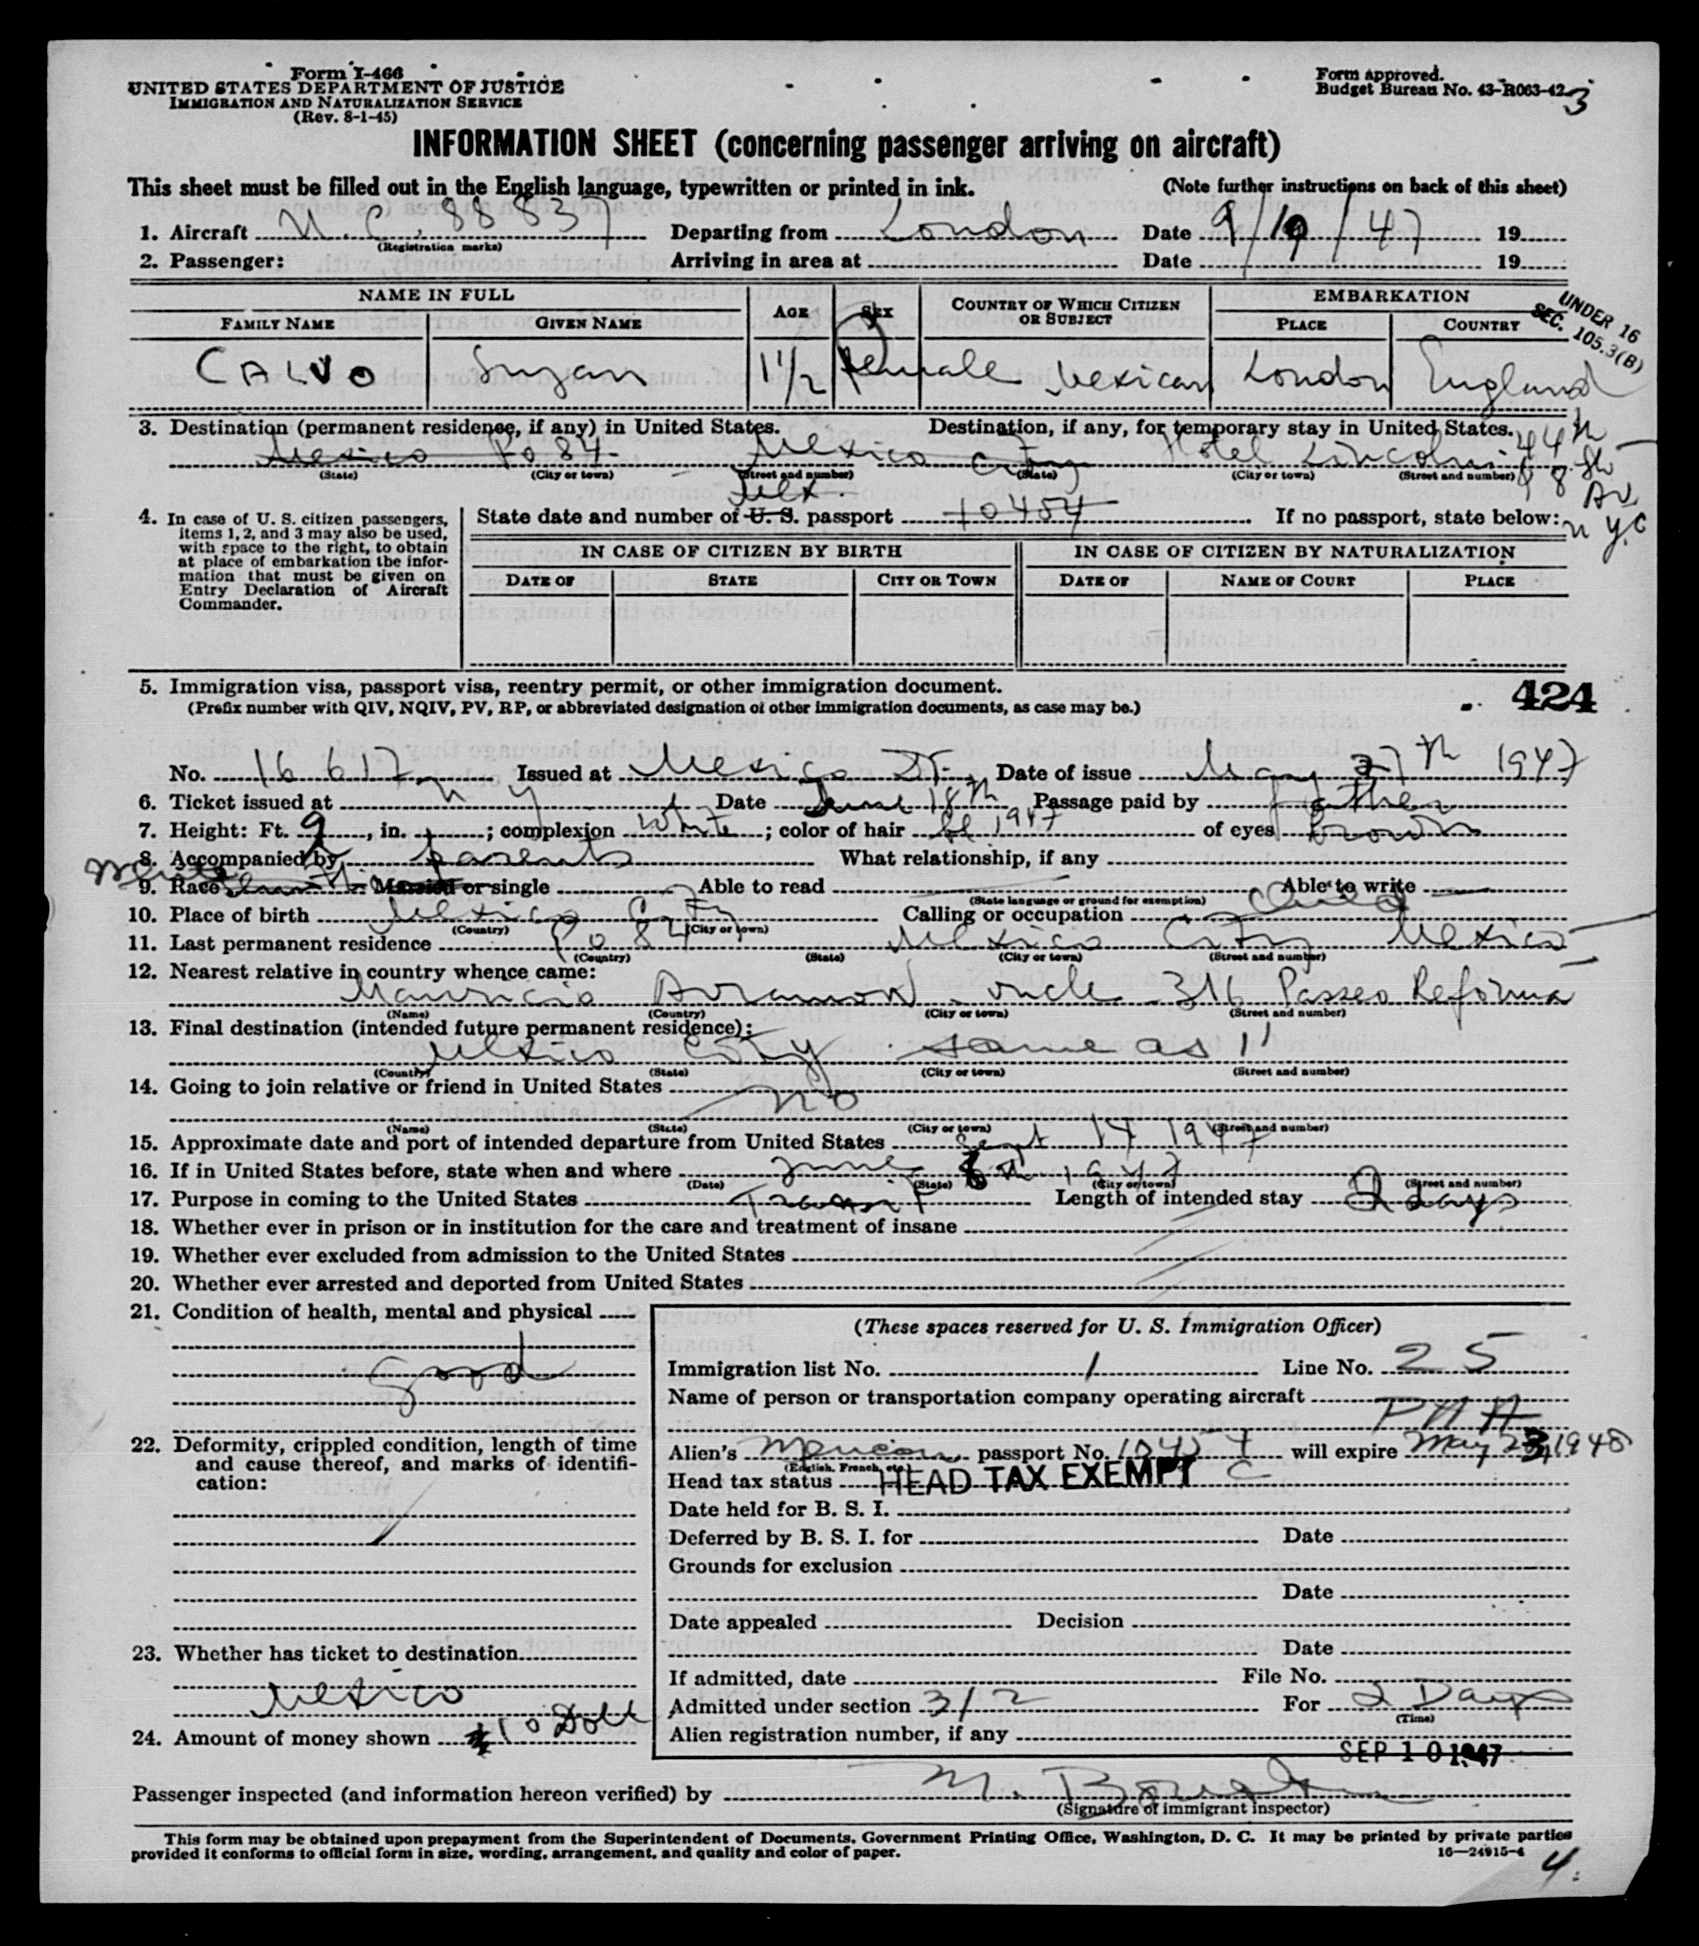 Form I-466
UNITED STATES DEPARTMENT OF JUSTICE
IMMIGRATION AND NATURALIZATION SERVICE
(Rev. 8-1-45)
Form approved.
Budget Bureau No. 43-R063-42
3
INFORMATION SHEET (concerning passenger arriving on aircraft)
This sheet must be filled out in the English language, typewritten or printed in ink. (Note further instructions on back of this sheet)
1. Aircraft N.C. 88837 Departing from London Date 9/10/47 19
(Registration marks)
2. Passenger: Arriving in area at Date 19
NAME IN FULL AGE SEX COUNTRY OF WHICH CITIZEN OR SUBJECT EMBARKATION
FAMILY NAME GIVEN NAME PLACE COUNTRY
UNDER 16
SEC. 105.3(B)
CALVO Suzan 1 1/2 female Mexican London England
3. Destination (permanent residence, if any) in United States. Destination, if any, for temporary stay in United States.
Mexico Po 84 Mexico City Hotel Lincoln 44th St 8 Av N Y C
(State) (City or town) (Street and number) (State) (City or town) (Street and number)
Mex.
4. In case of U. S. citizen passengers, items 1, 2, and 3 may also be used, with space to the right, to obtain at place of embarkation the information that must be given on Entry Declaration of Aircraft Commander.
State date and number of U. S. passport 10454 If no passport, state below:
IN CASE OF CITIZEN BY BIRTH IN CASE OF CITIZEN BY NATURALIZATION
DATE OF STATE CITY OR TOWN DATE OF NAME OF COURT PLACE
5. Immigration visa, passport visa, reentry permit, or other immigration document.
(Prefix number with QIV, NQIV, PV, RP, or abbreviated designation of other immigration documents, as case may be.)
424
No. 16617 Issued at Mexico Date of issue May 27th 1947
6. Ticket issued at N Y Date June 18th 1947 Passage paid by father
7. Height: Ft. 2, in. ; complexion white; color of hair of eyes brown
8. Accompanied by parents What relationship, if any
White
9. Race Married or single Able to read Able to write
(State language or ground for exemption)
10. Place of birth Mexico City Calling or occupation Child
(Country) (City or town)
11. Last permanent residence Po 84 Mexico City Mexico
(Country) (State) (City or town) (Street and number)
12. Nearest relative in country whence came:
Mauricio uncle 316 Passeo Reforma
(Name) (Country) (City or town) (Street and number)
13. Final destination (intended future permanent residence):
Mexico City same as 11
(Country) (State) (City or town) (Street and number)
14. Going to join relative or friend in United States
no
(Name) (State) (City or town) (Street and number)
15. Approximate date and port of intended departure from United States Sept 14 1947
16. If in United States before, state when and where June 8th 1947
(Date) (State) (City or town) (Street and number)
17. Purpose in coming to the United States Transit Length of intended stay 2 days
18. Whether ever in prison or in institution for the care and treatment of insane
19. Whether ever excluded from admission to the United States
20. Whether ever arrested and deported from United States
21. Condition of health, mental and physical
good
22. Deformity, crippled condition, length of time and cause thereof, and marks of identification:
23. Whether has ticket to destination
Mexico
24. Amount of money shown 10 Doll
(These spaces reserved for U. S. Immigration Officer)
Immigration list No. 1 Line No. 25
Name of person or transportation company operating aircraft
PAA
Alien's Mexican passport No. 10454 will expire May 23, 1948
(English, French,
Head tax status HEAD TAX EXEMPT C
Date held for B. S. I.
Deferred by B. S. I. for Date
Grounds for exclusion
Date
Date appealed Decision
Date
If admitted, date File No.
Admitted under section 3/2 For 2 Days
(Time)
Alien registration number, if any
SEP 10 1947
Passenger inspected (and information hereon verified) by M.
(Signature of immigrant inspector)
This form may be obtained upon prepayment from the Superintendent of Documents, Government Printing Office, Washington, D. C. It may be printed by private parties
provided it conforms to official form in size, wording, arrangement, and quality and color of paper.
16—24915-4
4